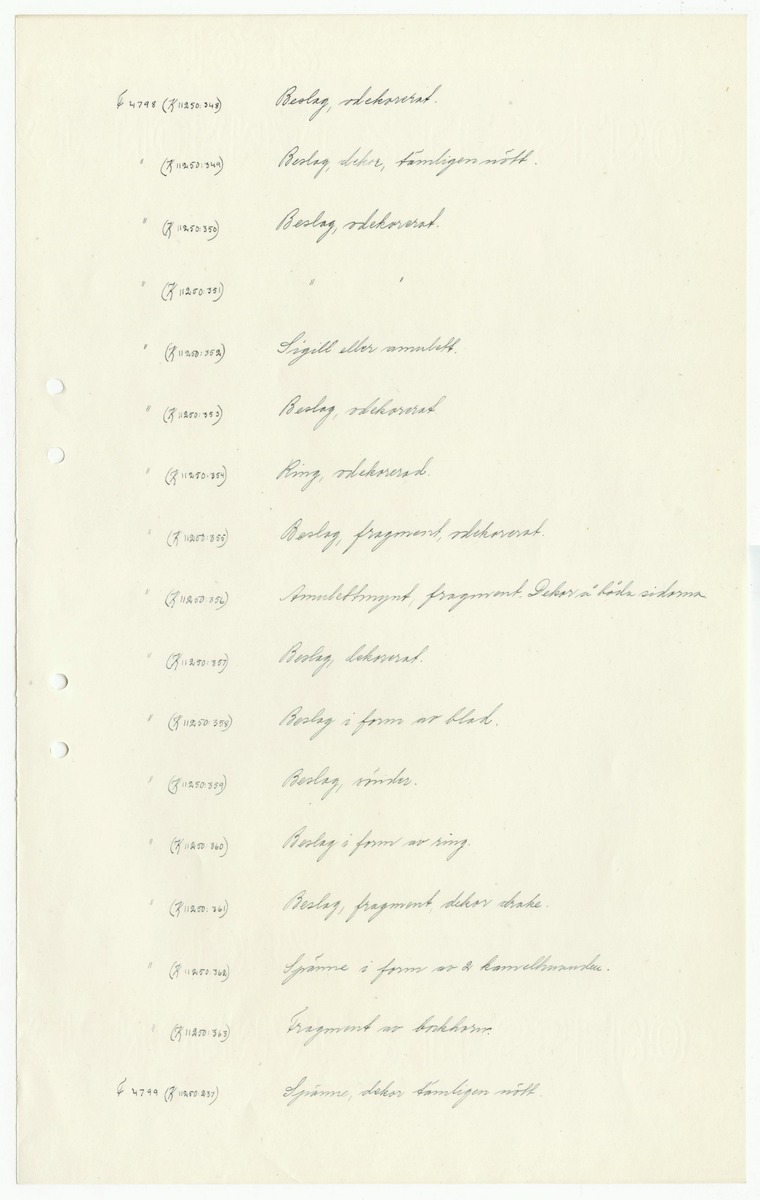 F 4798 (K 11250:348) Beslag, odekorerat.
" (K 11250:349) Beslag, dekor, tämligen nött.
" (K 11250:350) Beslag, odekorerat.
" (K 11250:351) " "
" (K 11250:352) Sigill eller amulett.
" (K 11250:353) Beslag, odekorerat.
" (K 11250:354) Ring, odekorerad.
" (K 11250:355) Beslag, fragment, odekorerat.
" (K 11250:356) Amulettmynt, fragment. Dekor å båda sidorna
" (K 11250:357) Beslag, dekorerat.
" (K 11250:358) Beslag i form av blad.
" (K 11250:359) Beslag, sönder.
" (K 11250:360) Beslag i form av ring.
" (K 11250:361) Beslag, fragment, dekor drake.
" (K 11250:362) Spänne i form av 2 kamelhuvuden.
" (K 11250:363) Fragment av bockhorn.
F 4799 (K 11250:237) Spänne, dekor tämligen nött.